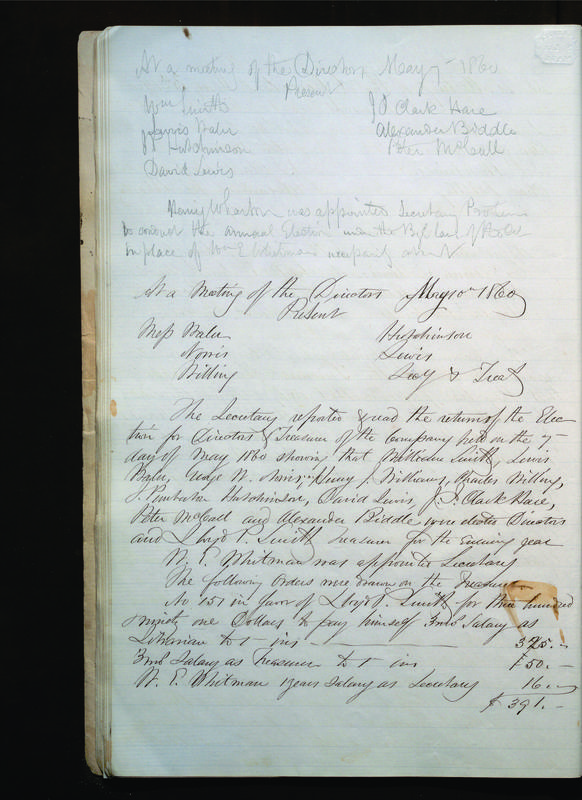 At a meeting of the Directors May 7 1860
Present
Wm Smith J C Clark Hare
Alexander Biddle
Hutchinson Peter McCall
David Lewis
Henry Wharton was appointed Secretary Protem
to conduct the annual Election under the By Law
in place of Wm E Whitman absent
At a Meeting of the Directors May 10th 1860
Present
Mess Baker Hutchinson
Norris Lewis
Willing Secy & Treas
The Secretary reported & read the return of the Elec
tion for Directors & Treasurer of the Company held on the 7
day of May 1860 showing that William Smith, Lewis
Henry J. Williams, Charles Willing,
J. Pemberton Hutchinson, David Lewis, J. I. Clark Hare,
Peter McCall and Alexander Biddle, were elected Directors
and Lloyd P. Smith Treasurer for the ensuing year
W. E. Whitman was appointed Secretary
The following Orders were drawn on the Treasurer
No 151 in favor of Lloyd P. Smith for three hundred
ninety one Dollars to pay himself 3 mos Salary as
Librarian to 1 ins 325.-
3 mos Salary as Treasurer to 1 ins 50.-
W. E. Whitman 1 years salary as Secretary 16.-
$ 391.-